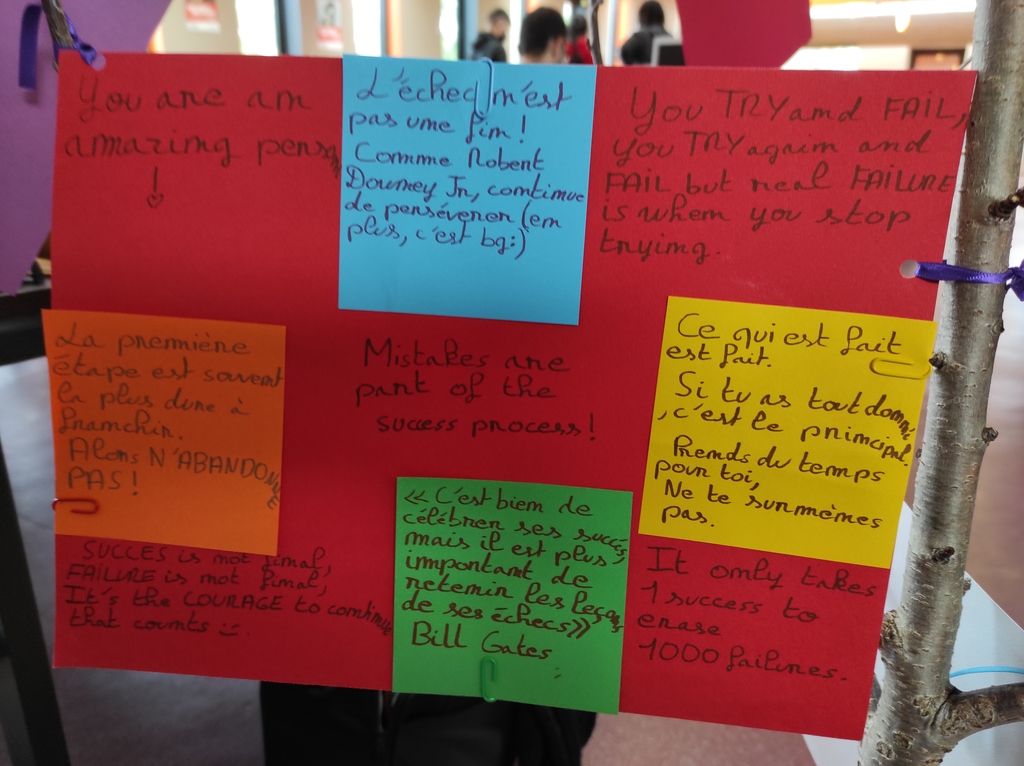 You are an
amazing person
!
L'échec n'est
pas une fin !
Comme Robert
Downey Jr, continue
de persévérer (en
plus, c'est bg:)
You TRY and FAIL,
you TRY again and
FAIL but real FAILURE
is when you stop
trying.
La première
étape est souvent
la plus dure à
franchir.
Alors N'ABANDONNE
PAS !
Mistakes are
part of the
success process !
Ce qui est fait
est fait.
Si tu as tout donné
, c'est le principal.
Prends du temps
pour toi,
Ne te surmènes
pas.
SUCCES is not final,
FAILURE is not final,
It's the COURAGE to continue
that counts
« C'est bien de
célébrer ses succès,
mais il est plus
important de
retenir les leçons
de ses échecs »
Bill Gates
It only takes
1 success to
erase
1000 failures.